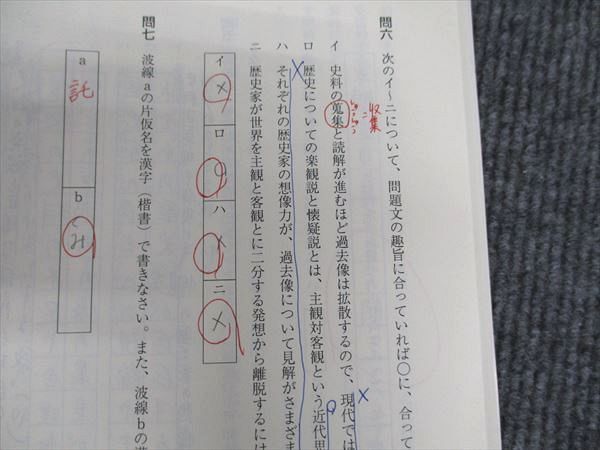 問六　次のイ〜ニについて、問題文の趣旨に合っていれば○に、合って
イ　史料の蒐集と読解が進むほど過去像は拡散するので、現代では
しゅうしゅう
＝収集
ロ　歴史についての楽観説と懐疑説とは、主観対客観という近代思
ハ　それぞれの歴史家の想像力が、過去像について見解がさまざま
ニ　歴史家が世界を主観と客観とに二分する発想から離脱するには
イ
×
ロ
ハ
ニ
×
問七　波線aの片仮名を漢字（楷書）で書きなさい。また、波線bの
a
託
b